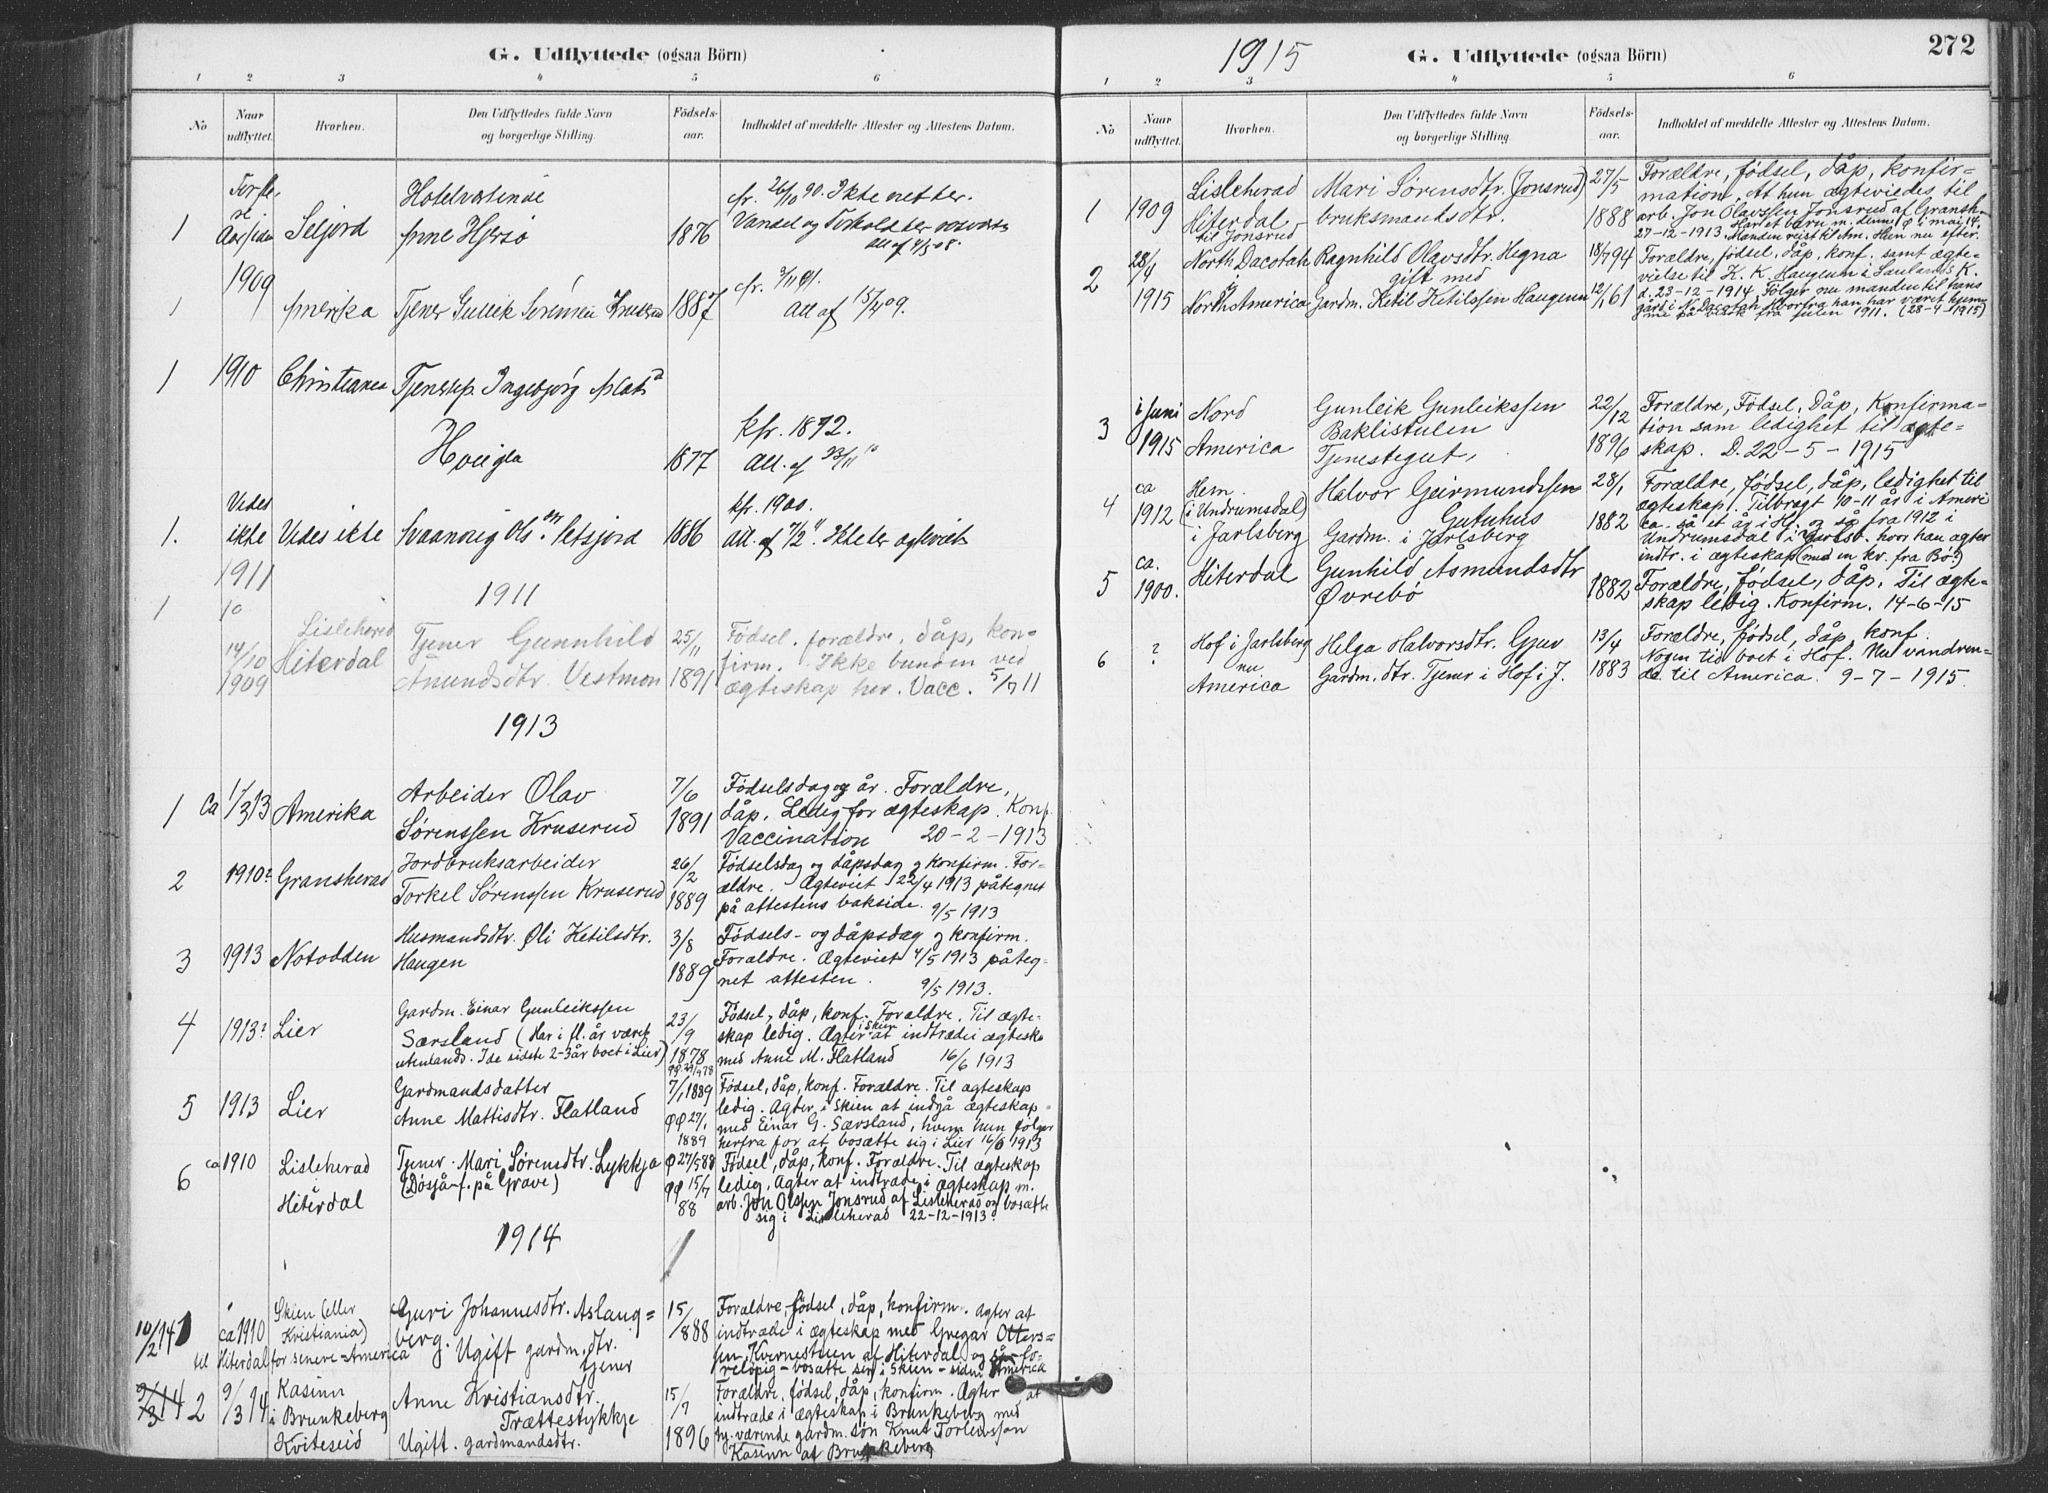 G. Udflyttede (ogsaa Börn)
1 2 3 4 5 6
No
Naar udflyttet.
Hvorhen.
Den Udflyttedes fulde Navn
og borgerlige Stilling.
Födsels-
aar.
Indholdet af meddelte Attester og Attestens Datum.
1
Seljord
Hotelvertinde
Anne
1876
26/10 90. Ikke
Vandel og
att. af
1909
1 Amerika
Tjener Gullik Sørensen
1887
att. af 15/4 09.
1 1910 Christiania
Tjenestep. Ingebjørg
1877
kfr. 1892.
att. af 23/11 10
1. Vides
ikke
Vides ikke
1886
kfr. 1900.
att. af
1911
1911
1
14/10
1909
Lisleherad
Hiterdal
Tjener Gunnhild
Amundsdtr. Vestmon
25/11
1891
Fødsel. forældre, dåp, kon-
firm. Ikke bunden ved
ægteskap her. Vacc. 5/7 11
1913
1 Ca 1/3 13 Amerika
Arbeider Olav
Sørenssen Kruserud
7/6
1891
Fødselsdag og år. Forældre,
dåp, Ledig for ægteskap. Konf.
Vaccination 20-2-1913
2 1910? Gransherad
Jordbruksarbeider
Torkel Sørenssen Kruserud
26/2
1889
Fødselsdag og dåpsdag og konfirm. For-
ældre. Ægteviet 22/4 1913 påtegnet
på attestens bakside. 9/5 1913
3 1913 Notodden
Husmandsdtr. Øli Ketilsdtr.
Haugen
3/8
1889
Fødsels- og dåpsdag og konfirm.
Forældre. Ægteviet 4/5 1913 påteg-
net attesten. 9/5 1913.
4 1913? Lier
Gardm. Einar Gunleikssen
Særsland (Har i fl. år været
utenlands. I de sidste 2-3 år boet i Lier)
23/9
1878
Fødsel, dåp, konf. Forældre. Til ægte-
skap ledig. Agter i Skien at indtræde i ægteska
med Anne M. Flatland 16/6 1913
5 1913 Lier
Gardmandsdatter
Anne Mattisdtr. Flatland
7/1 1889
ØØ 27/1
1889
Fødsel, dåp, konf. Forældre. Til ægteskap
ledig. Agter i Skien at indgå ægteskap
med Einar G. Særsland, hvem hun følger
herfra for at bosætte sig i Lier 16/6 1913
6 ca 1910 Lisleherad
Hiterdal
Tjener. Mari Sørensdtr. Lykkja
(Døsjå-f. på Grave)
Ø 27/5 88
ØØ 15/7
88
Fødsel, dåp, konf. Forældre. Til ægteskap
ledig. Agter at indtræde i ægteskap m.
arb. Jon Olssen Jonsrud af Lisleherad og bosætte
sig i Lisleherad 22-12-1913.
1914
10/2 14 1
ca 1910
til Hiterdal
Skien (eller
Kristiania)
for senere Amerika
Guri Johannesdtr. Aslaug-
berg. Ugift gardm. dtr.
tjener
15/
888
Forældre, fødsel, dåp, konfirm. Agter at
indtræde i ægteskap med Gregar Otters-
sen Kvernestuen af Hiterdal og så fo-
reløpig bosætte sig i Skien - siden America
9/3 14 2 9/3 14
Kasinn
i Brunkeberg
Kviteseid
Anne Kristiansdtr.
Trættestykkje
Ugift. gardmandsdtr.
15/7
1896
Forældre, fødsel, dåp, konfirm. Agter at
indtræde i ægteskap i Brunkeberg med
hj. værende gardm. søn Knut Torleivsson
Kasinn af Brunkeberg
1915
G. Udflyttede (ogsaa Börn)
272
1 2 3 4 5 6
No
Naar udflyttet.
Hvorhen.
Den Udflyttedes fulde Navn
og borgerlige Stilling.
Födsels-
aar.
Indholdet af meddelte Attester og Attestens Datum.
1 1909
Lisleherad
Hiterdal
til Jonsrud
Mari Sørensdtr. (Jonsrud)
bruksmandsdtr.
27/5
1888
Forældre, fødsel, dåp, konfir-
mation. At hun ægteviedes til
arb. Jon Olavssen Jonsrud af Gransh.
27-12-1913. Har et barn m. denne Ø i mai 14.
Manden reist til Am. Hun nu efter.
2
28/4
1915
North Dacotah
i
North America
Ragnhild Olavsdtr. Hegna
gift med
Gardm. Ketil Ketilssen Haugenn
18/7 94
12/1 61
Forældre, fødsel, dåp, konf. samt ægte-
vielse til K. K. Haugenn i Saulands K.
d. 23-12-1914. Følger nu manden til hans
gard i N. Dacotah. Hvorfra han har været hjem-
me på besøk fra julen 1911. (28-4-1915)
3
i juni
1915
Nord
America
Gunleik Gunleikssen
Baklistulen
Tjenestegut,
22/12
1896
Forældre, Fødsel, Dåp, Konfirma-
tion sam ledighet til ægte-
skap. D. 22-5-1915
4
ca
1912
Hem
(i Undrumsdal)
i Jarlsberg
Halvor Geirmundssen
Gutuhus
Gardm. i Jarlsberg
28/1
1882
Forældre, fødsel, dåp, ledighet til
ægteskap. Tilbragt 10-11 år i Ameri
ca. så et år i H. og så fra 1912 i
Undrumsdal i Jarlsb. hvor han agter
indtr. i ægteskap (med en kv. fra Bø?)
5
ca.
1900.
Hiterdal
Gunhild Asmundsdtr
Øvrebø
1882
Forældre, fødsel, dåp, Til ægte-
skap ledig. Konfirm. 14-6-15
6 ?
Hof i Jarlsberg
nu
America
Helga Halvorsdtr. Gjuv
Gardm. dtr. Tjener i Hof i J.
13/4
1883
Forældre, fødsel, dåp, konf.
Nogen tid boet i Hof. Nu vandren-
de til America. 9-7-1915.